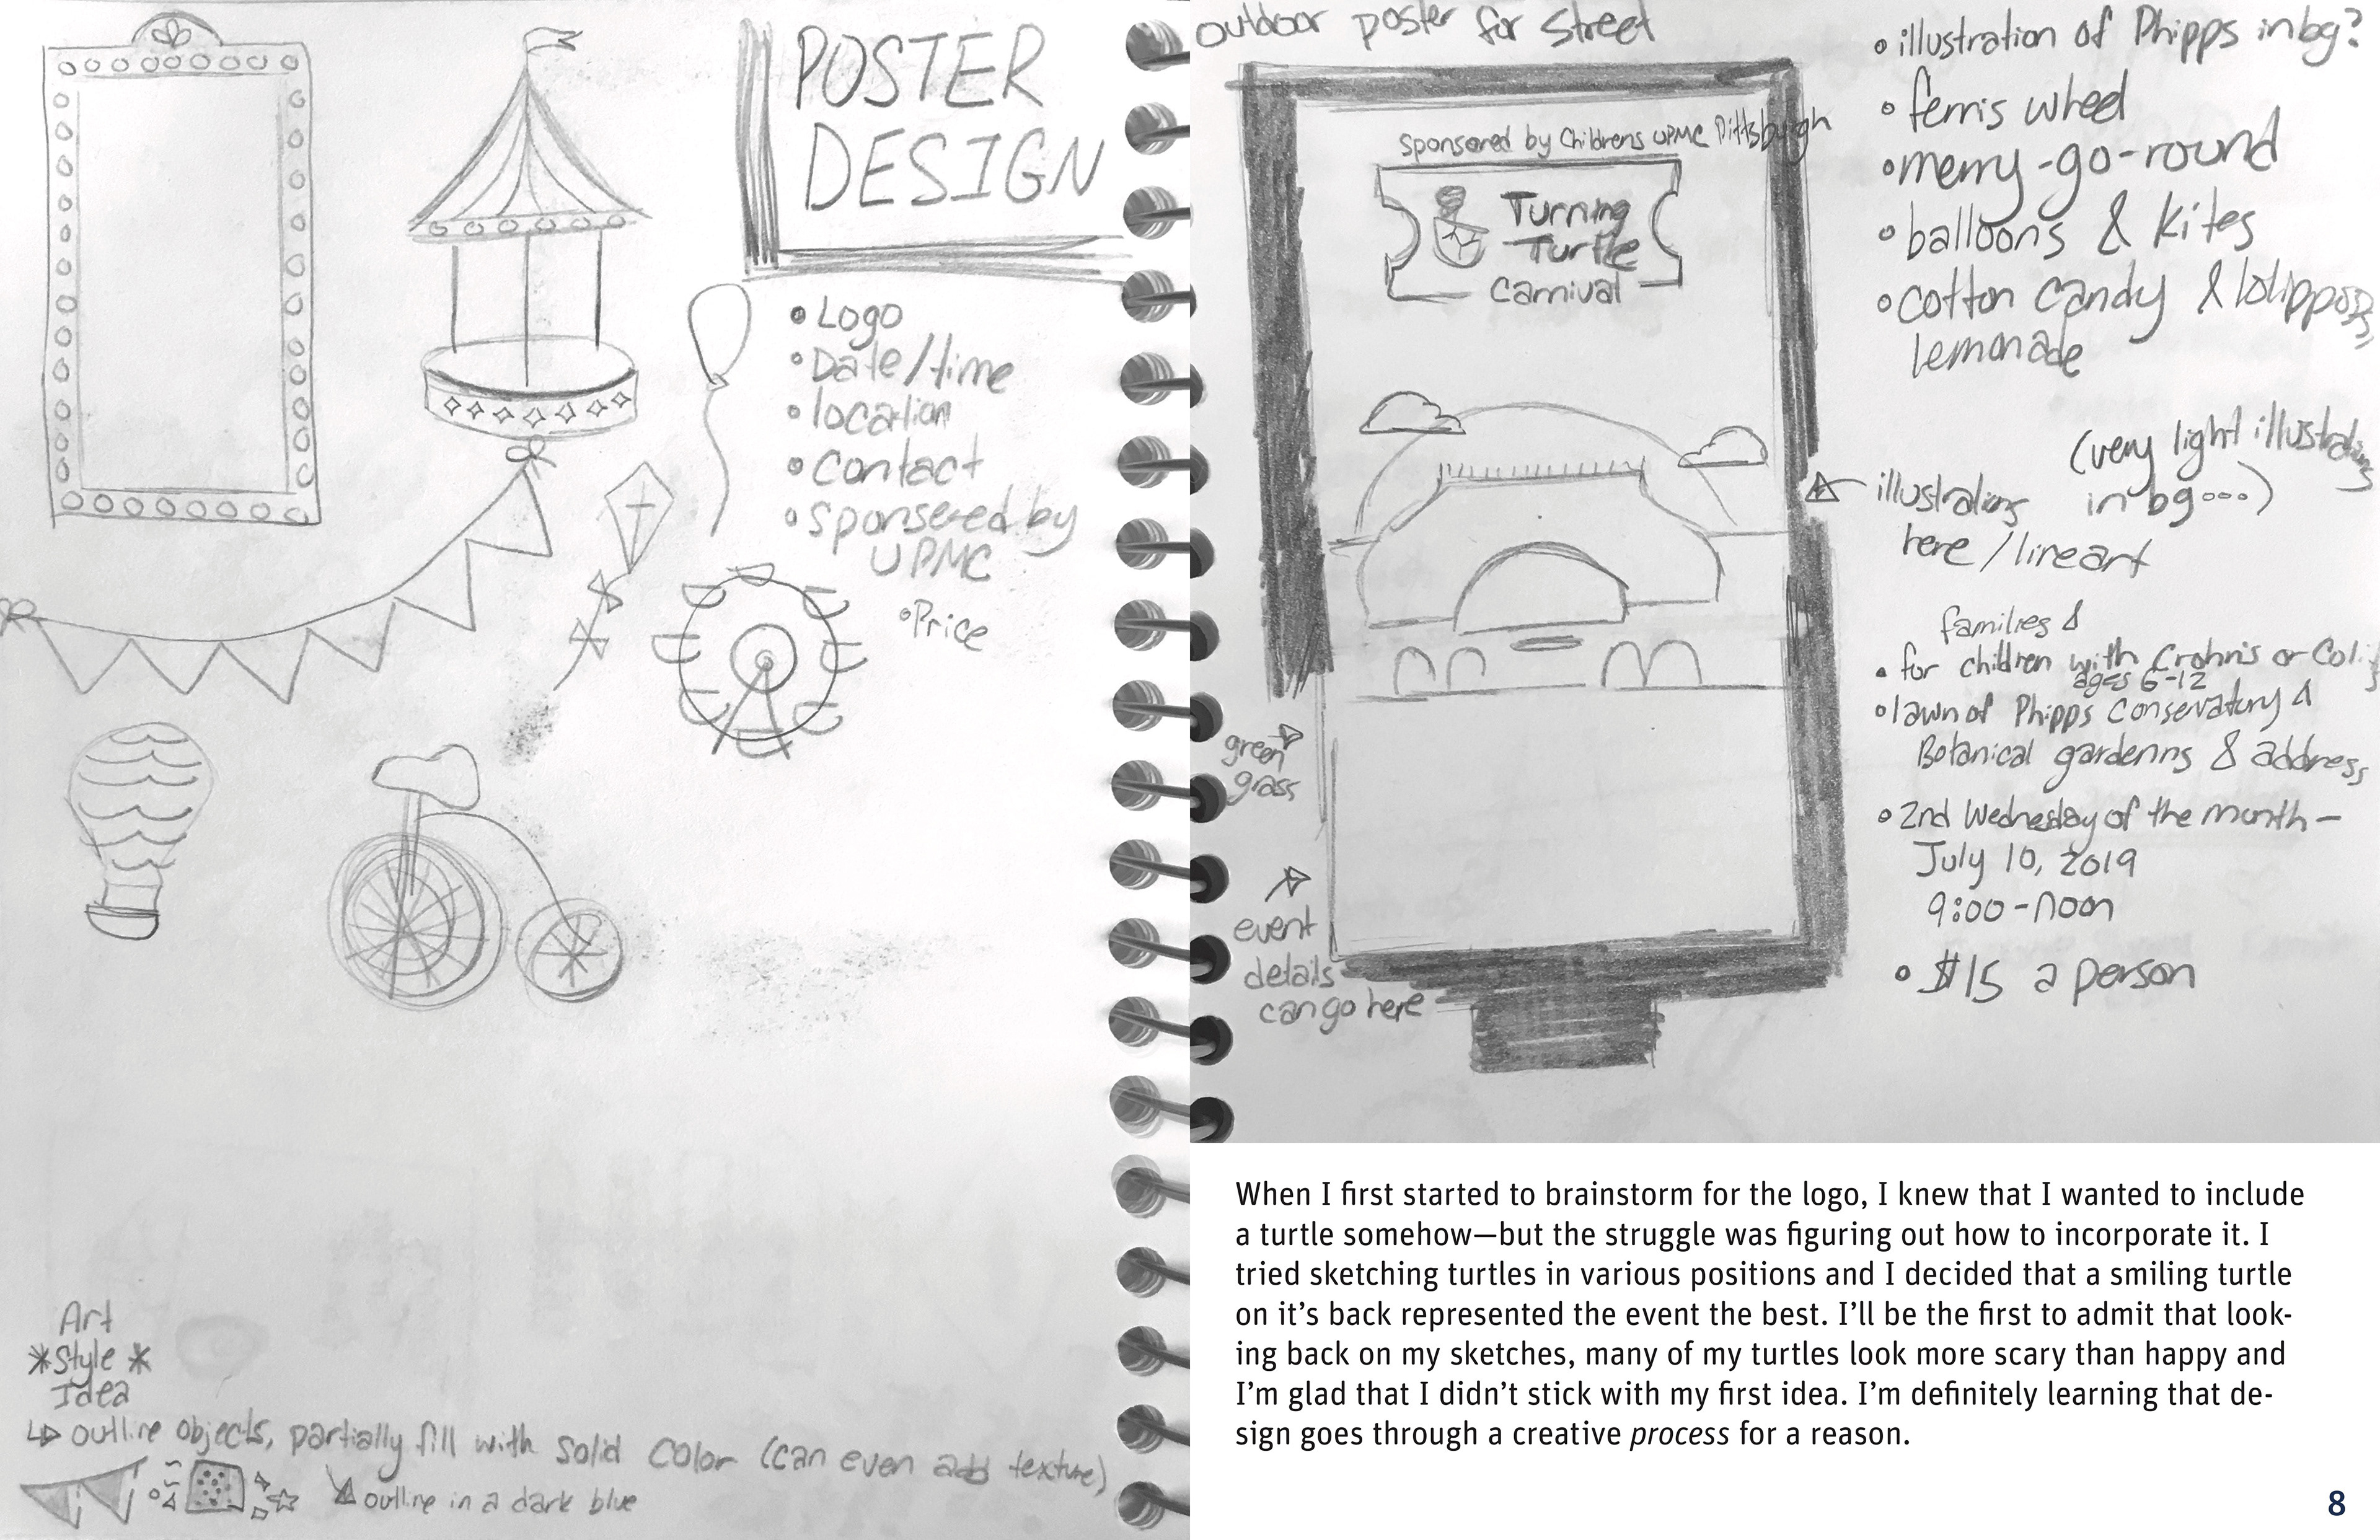 POSTER
DESIGN
• Logo
• Date/time
• location
• Contact
• Sponsered by
UPMC
• Price
Art
*Style*
Idea
outline objects, partially fill with solid color (can even add texture)
outline in a dark blue
outdoor poster for Street
sponsored by Childrens UPMC Pittsburgh
Turning
Turtle
Carnival
green
grass
event
details
can go here
• illustration of Phipps in bg?
• ferris wheel
• merry-go-round
• balloons & kites
• cotton candy & lolippops,
lemonade
(very light illustrations
in bg...)
illustrations
here/lineart
families &
• for children with Crohn's or
ages 6-12
• lawn of Phipps Conservatory &
Botanical gardenns & address
• 2nd Wednesday of the month –
July 10, 2019
9:00-noon
• $15 a person
When I first started to brainstorm for the logo, I knew that I wanted to include
a turtle somehow—but the struggle was figuring out how to incorporate it. I
tried sketching turtles in various positions and I decided that a smiling turtle
on it's back represented the event the best. I'll be the first to admit that look-
ing back on my sketches, many of my turtles look more scary than happy and
I'm glad that I didn't stick with my first idea. I'm definitely learning that de-
sign goes through a creative process for a reason.
8